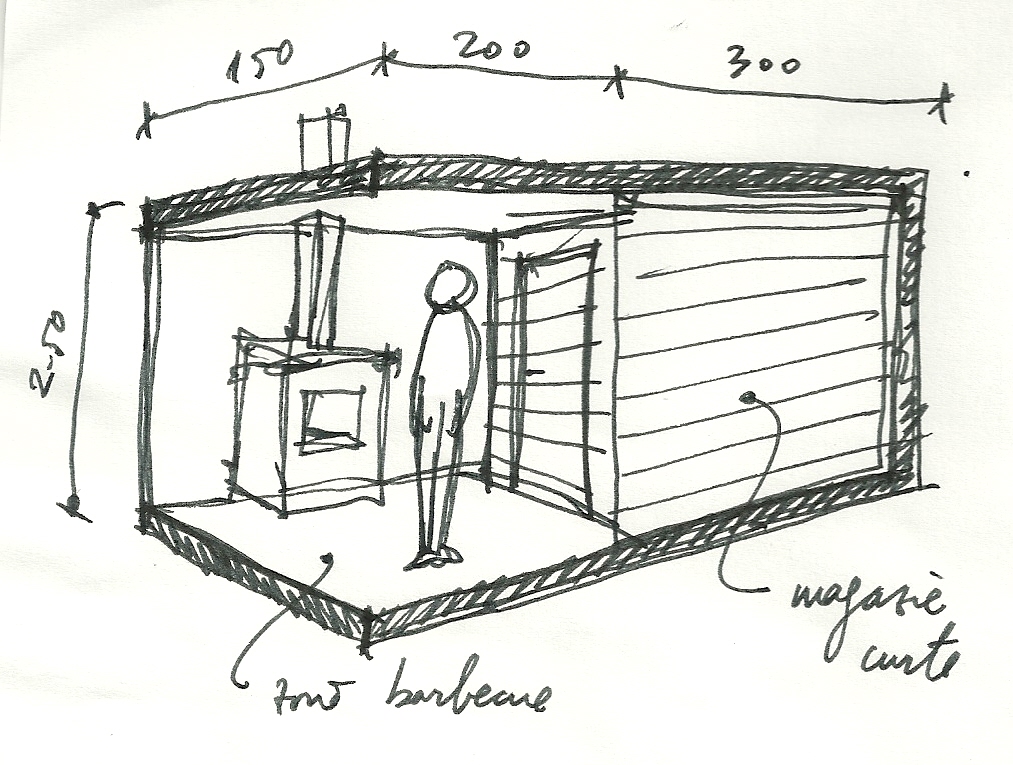 150
200
300
2.50
magasie
curte
zonă barbecue